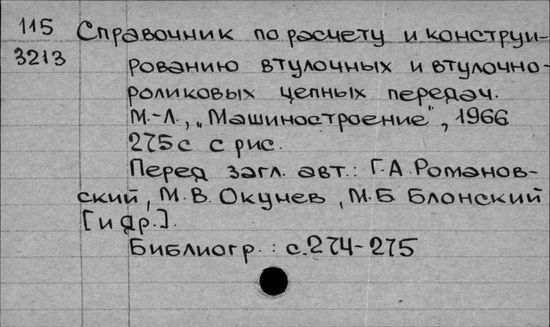 115 Справочник по расчету и конструи-
3213 рованию втулочных и втулочно-
роликовых цепных передач.
М.-Л., „Машиностроение", 1966
275 с. с рис.
Перед загл. авт.: Г.А. Романов-
ский, М.В. Окунев, М.Б Блонский
[и др.].
Библиогр.: с.274-275